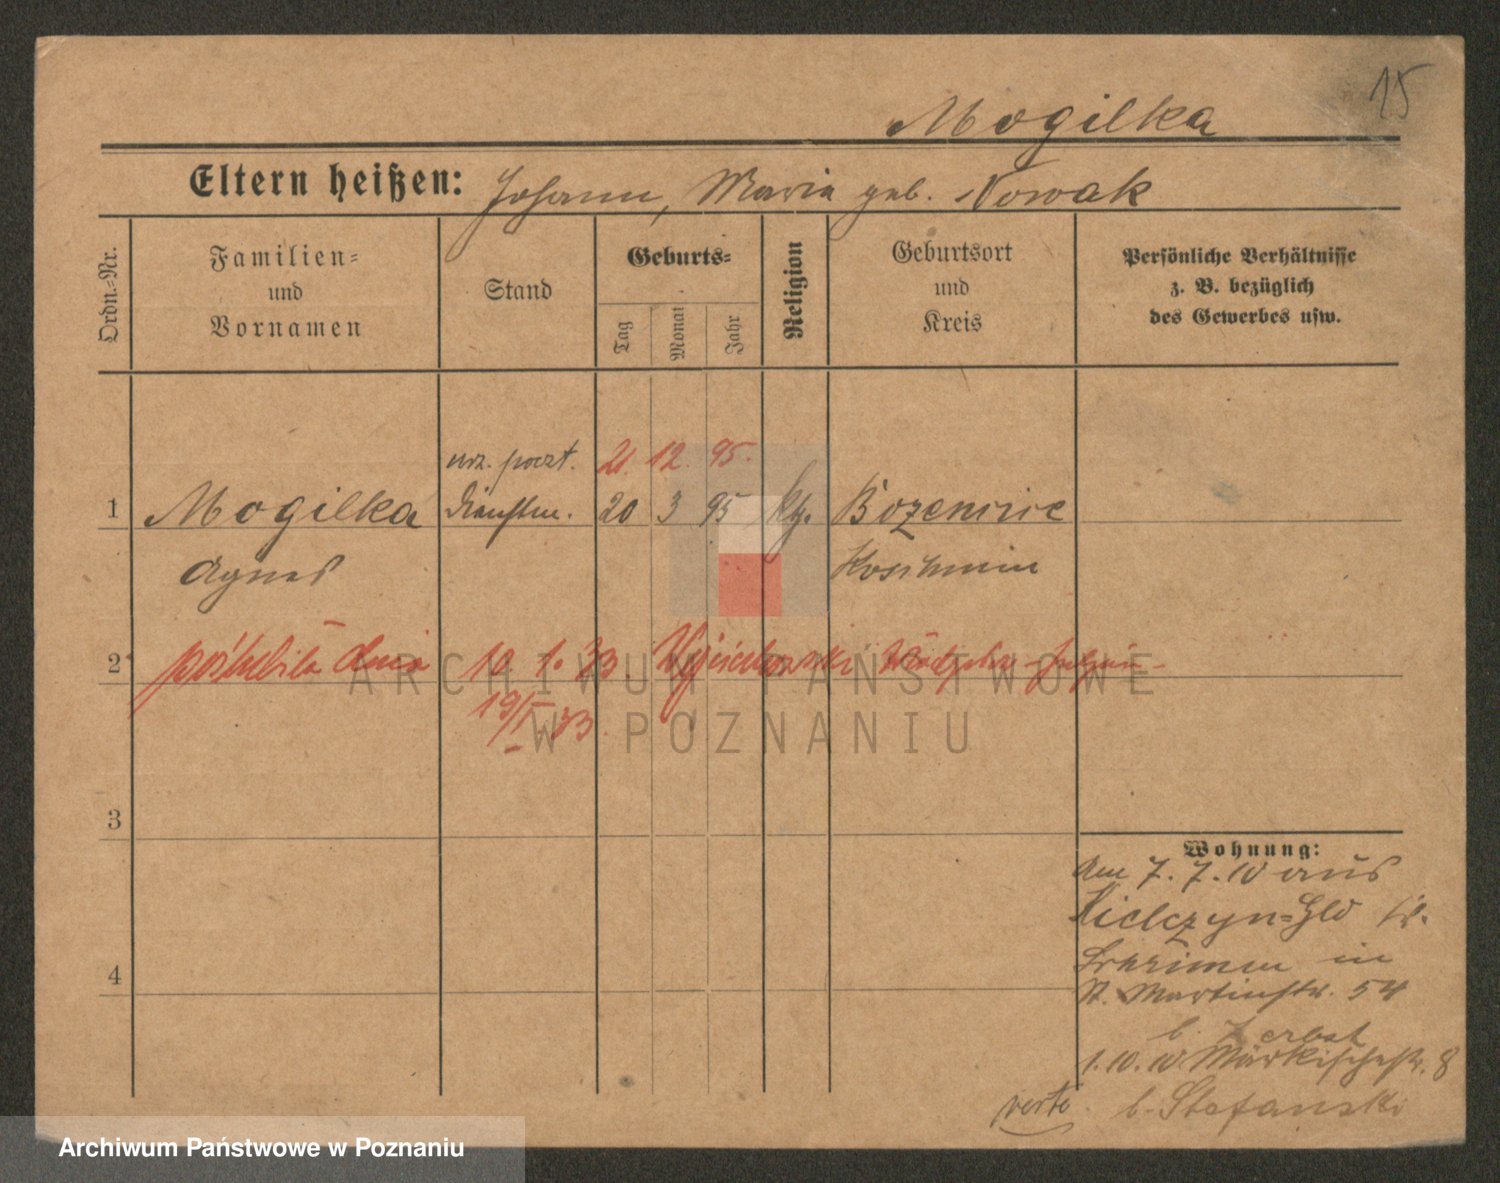 15
Mogilka
Eltern heißen: Johann, Maria geb. Nowak
Ordn.-Nr.
Familien-
und
Vornamen
Stand
Geburts-
Tag
Monat
Jahr
Religion
Geburtsort
und
Kreis
Persönliche Verhältnisse
z. B. bezüglich
des Gewerbes usw.
urz. poczt. 21. 12. 95.
1 Mogilka Dienstm. 20 3 95 Kth. Bozenwic
Agnes Koschmin
2 poślubiła dnia 10. 1. 33.
19/I 33.
3
4
Wohnung:
Am 7. 7. 10 aus
Kielczyn-Gld Kr.
Schrimm in
St. Martinstr. 54
b. Zerbst
1.10.10 Märkischestr. 8
b. Stefanski
verte
ARCHIWUM PAŃSTWOWE
W POZNANIU
Archiwum Państwowe w Poznaniu